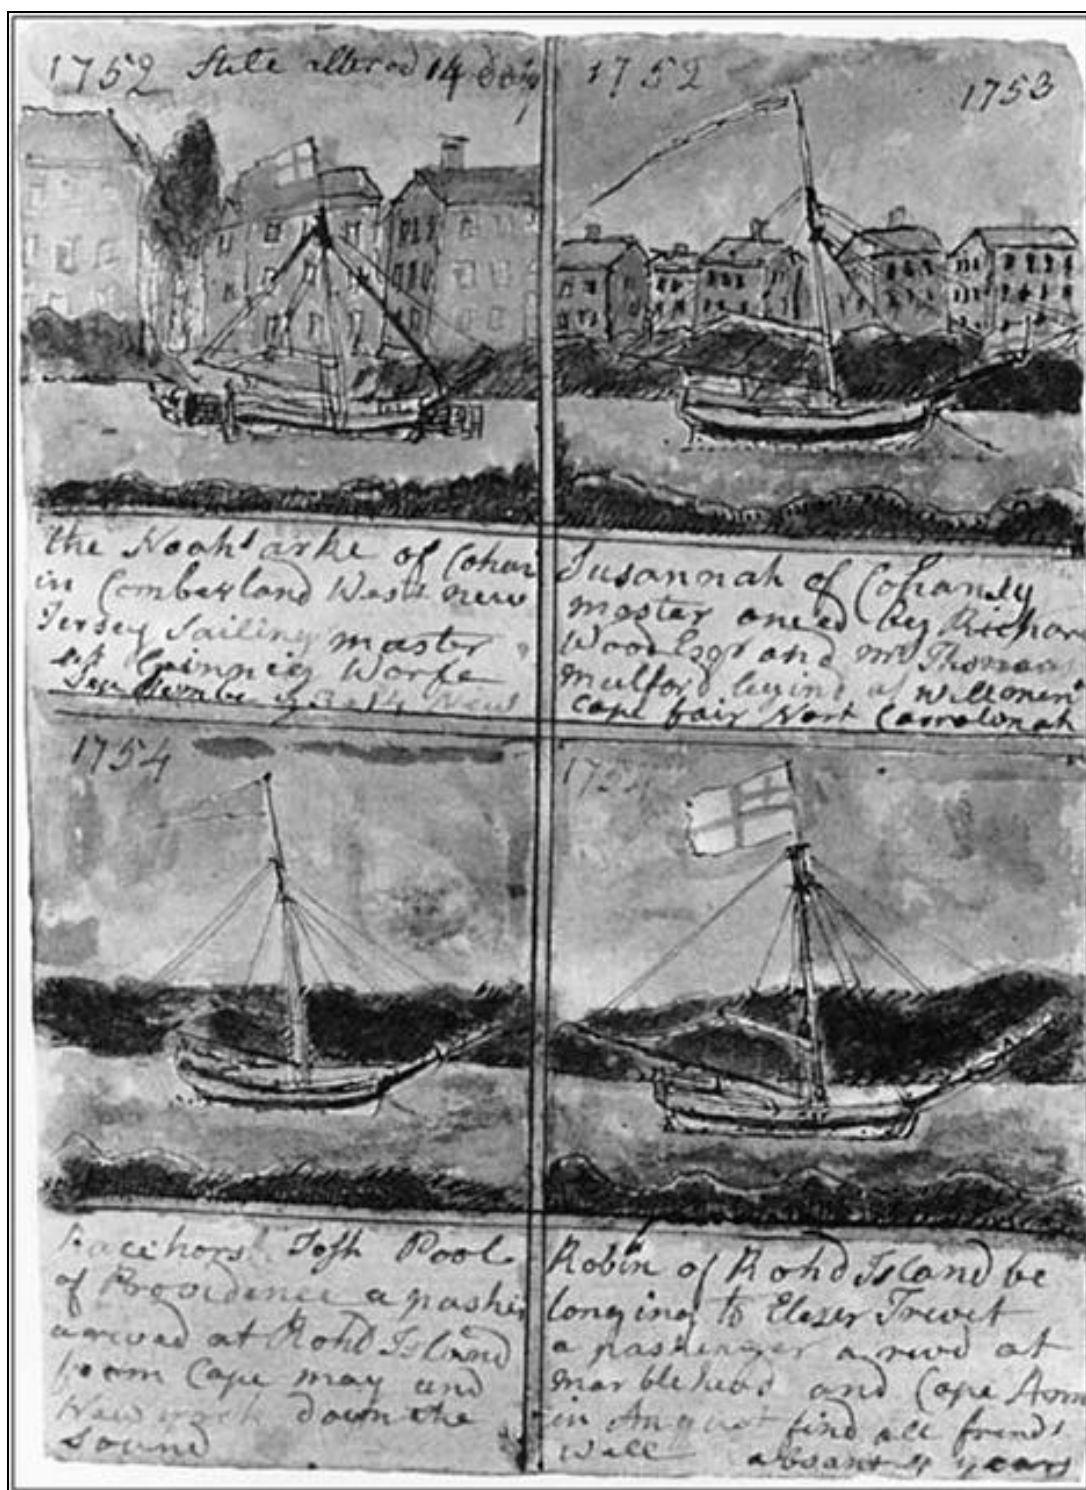 1752 Stile altered 14 days
the Noahs arke of Cohan
in Comberland West new
Jersey Sailing master
at Ginnies Worfe
September y 3 14 New
1752 1753
Susannah of Cohansy
master oned by Richar
Wood Esqr and mr Thomas
mulford leying at willmen
Cape fair Nort Carrolonah
1754
Racehors Josh Pool
of Providence a pashen
arived at Rohd Island
from Cape may and
New york down the
Sound
Robin of Rohd Island be
longing to Elezer Trevet
a pashenger arived at
marblehead and Cape Ann
in August find all frends
Well absant 4 years